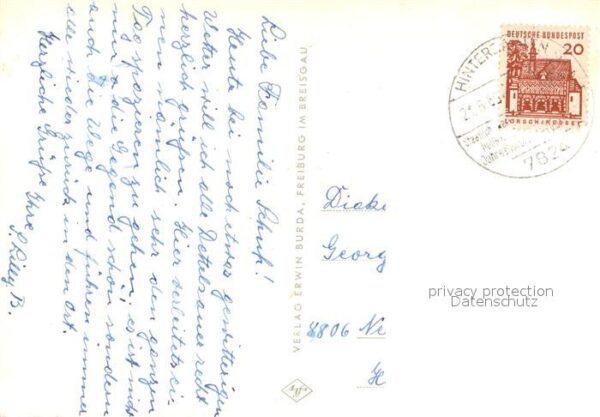 Liebe Familie Schuh!
Heute bei noch etwas gewitterigem
Wetter will ich alle Dettelsauer recht
herzlich grüßen. Hier verleitet es ei-
nen nämlich sehr den ganzen
Tag spazieren zu gehen, es ist nicht
nur die Gegend schön sondern
auch die Wege und führen immer
alle wieder zurück in den Ort.
Herzliche Grüße Ihre
Lilly B.
VERLAG ERWIN BURDA, FREIBURG IM BREISGAU
Agfa
DEUTSCHE BUNDESPOST
20
LORSCH/HESSEN
HINTERZ
7824
Diako
Georg
8806 Ne
H
privacy protection
Datenschutz